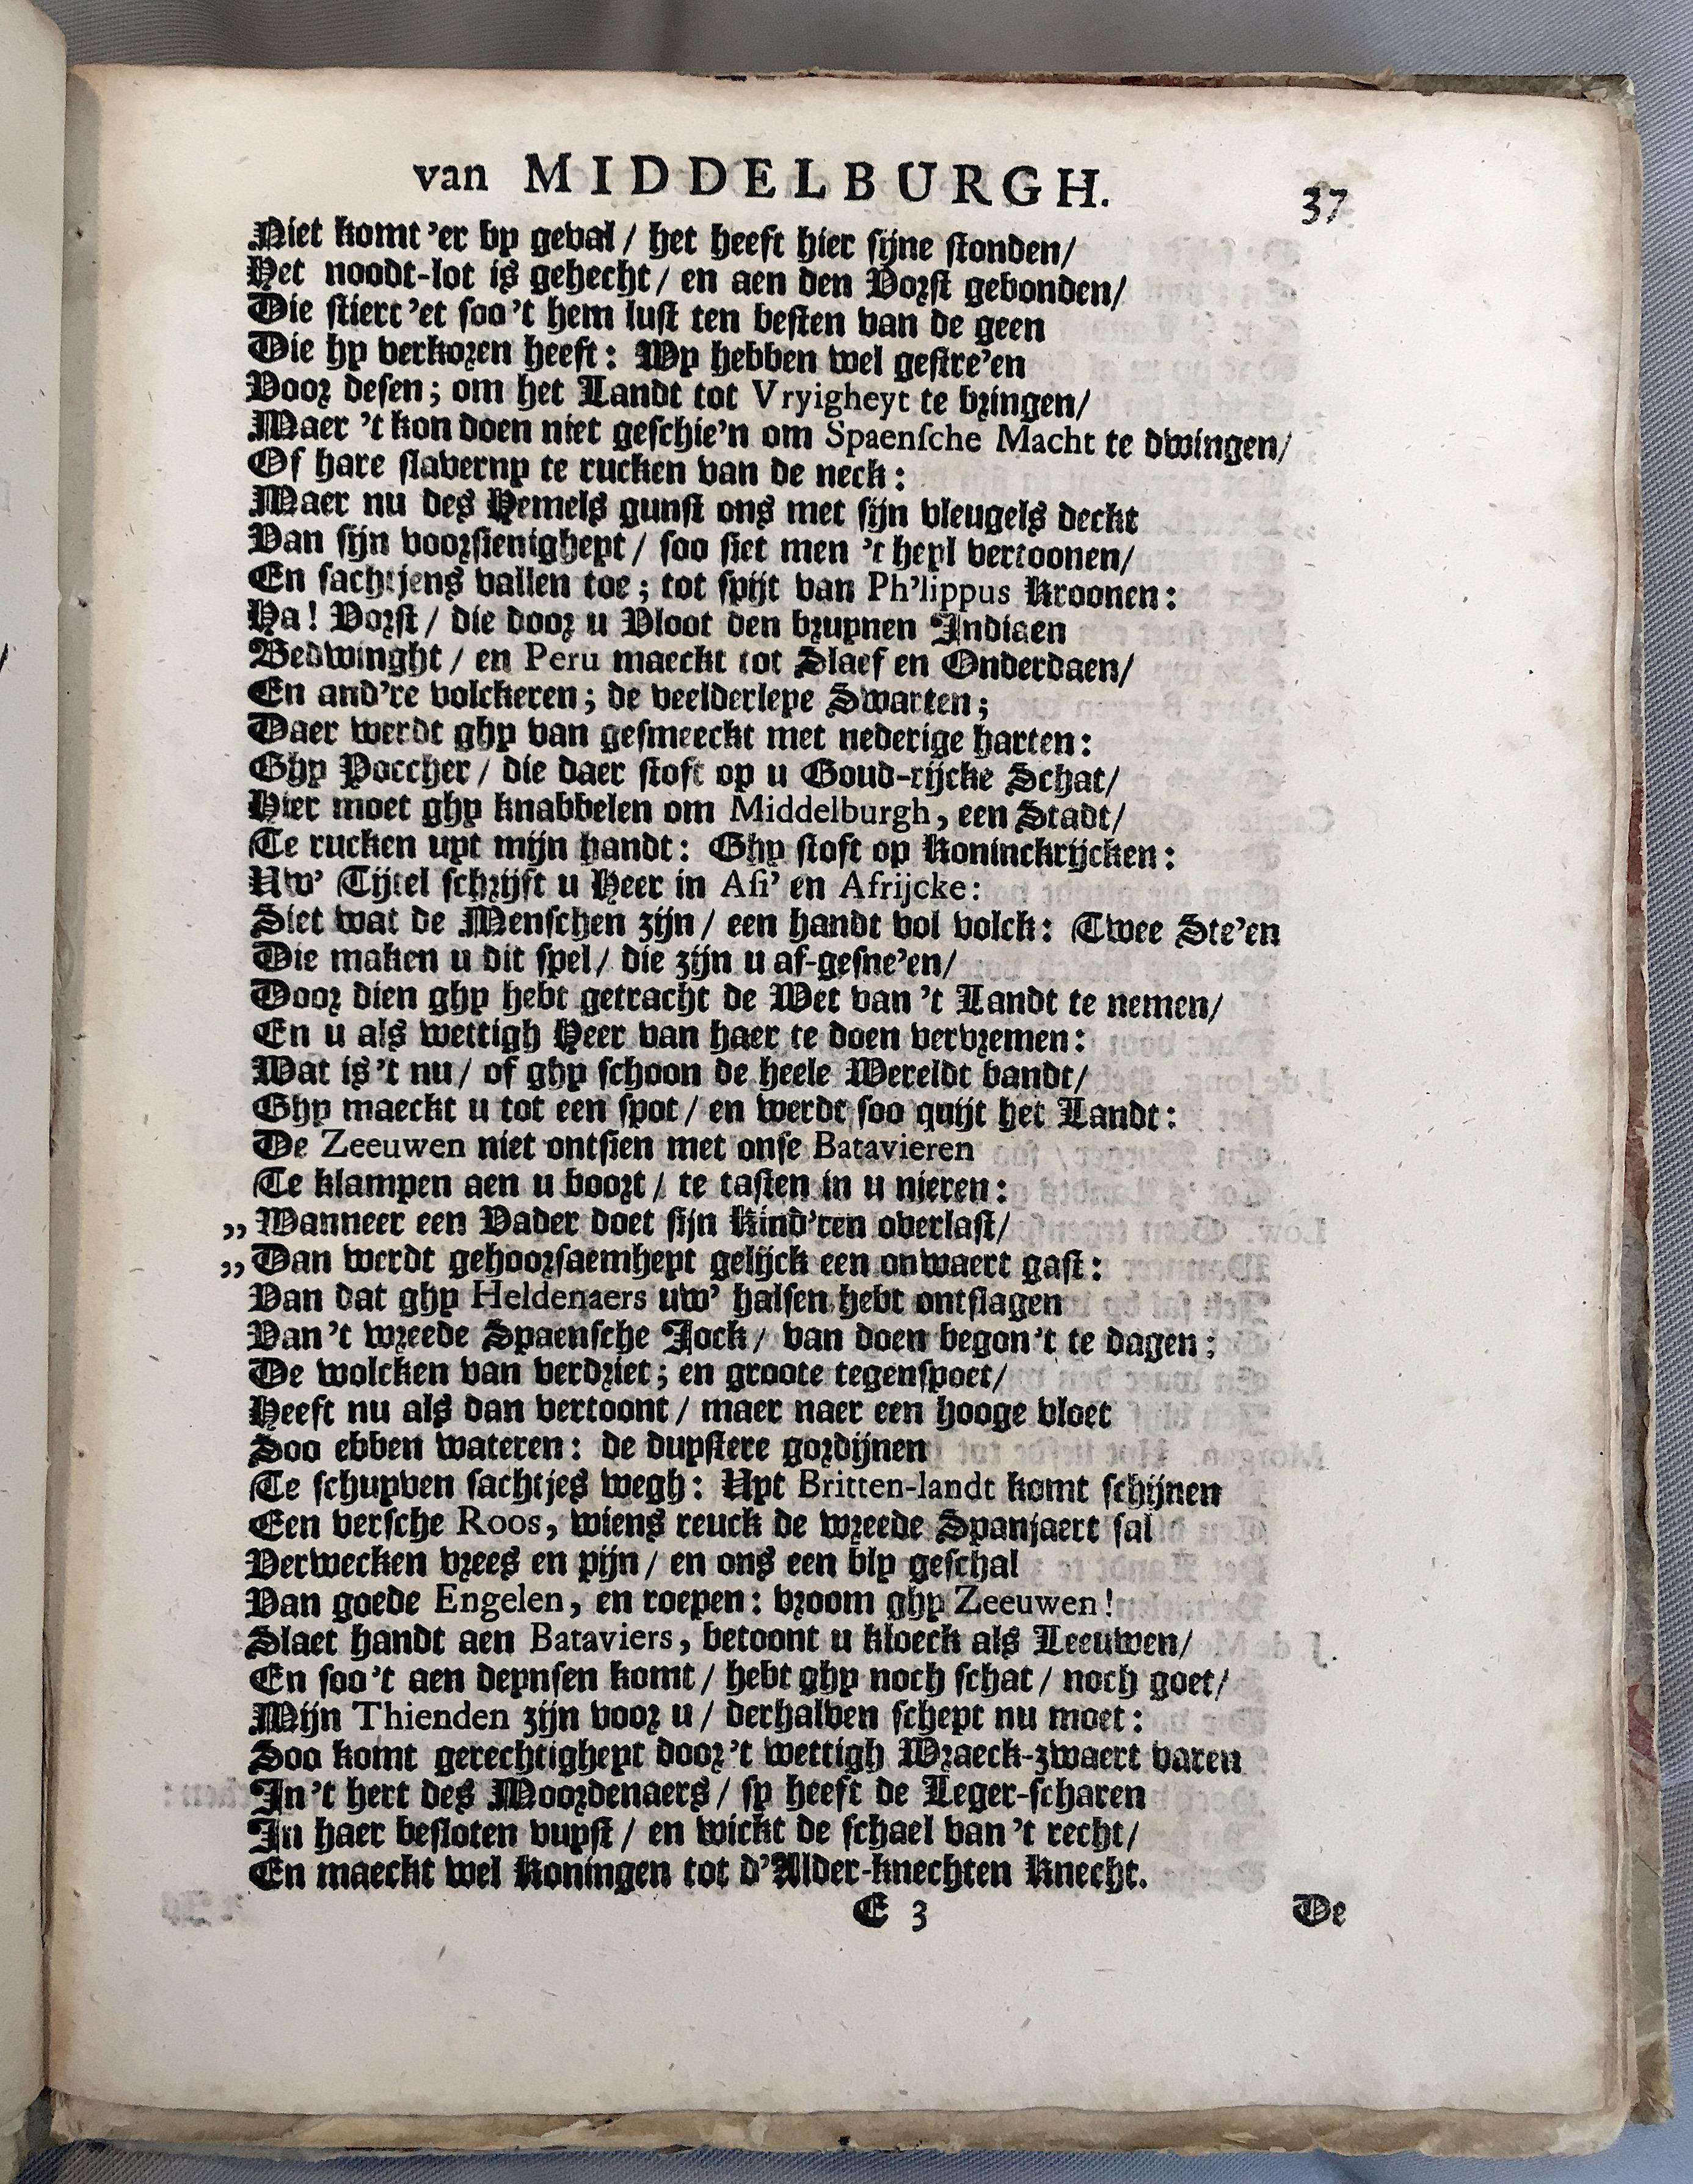 van MIDDELBURGH. 37
Niet komt 'er by geval / het heeft hier sijne stonden/
Het noodt-lot is gehecht / en aen den Vorst gebonden/
Die stiert 'et soo 't hem lust ten besten van de geen
Die hy verkoren heeft: Wy hebben wel gestre'en
Voor desen; om het Landt tot Vryigheyt te bringen/
Maer 't kon doen niet geschie'n om Spaensche Macht te dwingen/
Of hare slaverny te rucken van de neck:
Maer nu des Hemels gunst ons met sijn vleugels deckt
Van sijn voorsienigheyt / soo siet men 't heyl vertoonen/
En sachtjens vallen toe; tot spijt van Ph'lippus Kroonen:
Ha! Vorst / die door u Vloot den bruynen Indiaen
Bedwinght / en Peru maeckt tot Slaef en Onderdaen/
En and're volckeren; de veelderleye Swarten;
Daer werdt ghy van gesmeeckt met nederige harten:
Ghy Poccher / die daer stoft op u Goud-rijcke Schat/
Hier moet ghy knabbelen om Middelburgh, een Stadt/
Te rucken uyt mijn handt: Ghy stoft op Koninckrijcken:
Uw' Tijtel schrijft u Heer in Asi' en Afrijcke:
Siet wat de Menschen zijn / een handt vol volck: Twee Ste'en
Die maken u dit spel / die zijn u af-gesne'en/
Door dien ghy hebt getracht de Wet van 't Landt te nemen/
En u als wettigh Heer van haer te doen vervremen:
Wat is 't nu / of ghy schoon de heele Wereldt bandt/
Ghy maeckt u tot een spot / en werdt soo quijt het Landt:
De Zeeuwen niet ontsien met onse Batavieren
Te klampen aen u boort / te tasten in u nieren:
„ Wanneer een Vader doet sijn Kind'ren overlast/
„ Dan werdt gehoorsaemheyt gelijck een onwaert gast:
Van dat ghy Heldenaers uw' halsen hebt ontslagen
Van 't wreede Spaensche Jock / van doen begon 't te dagen:
De wolcken van verdriet; en groote tegenspoet/
Heeft nu als dan vertoont / maer naer een hooge vloet
Soo ebben wateren: de duystere gordijnen
Te schuyven sachtjes wegh: Uyt Britten-landt komt schijnen
Een versche Roos, wiens reuck de wreede Spanjaert sal
Verwecken vrees en pijn / en ons een bly geschal
Van goede Engelen, en roepen: vroom ghy Zeeuwen!
Slaet handt aen Bataviers, betoont u kloeck als Leeuwen/
En soo 't aen deynsen komt / hebt ghy noch schat / noch goet/
Mijn Thienden zijn voor u / derhalven schept nu moet:
Soo komt gerechtigheyt door 't wettigh Wraeck-zwaert varen
In 't hert des Moordenaers / sy heeft de Leger-scharen
In haer besloten vuyst / en wickt de schael van 't recht/
En maeckt wel Koningen tot d'Alder-knechten Knecht.
E 3 De